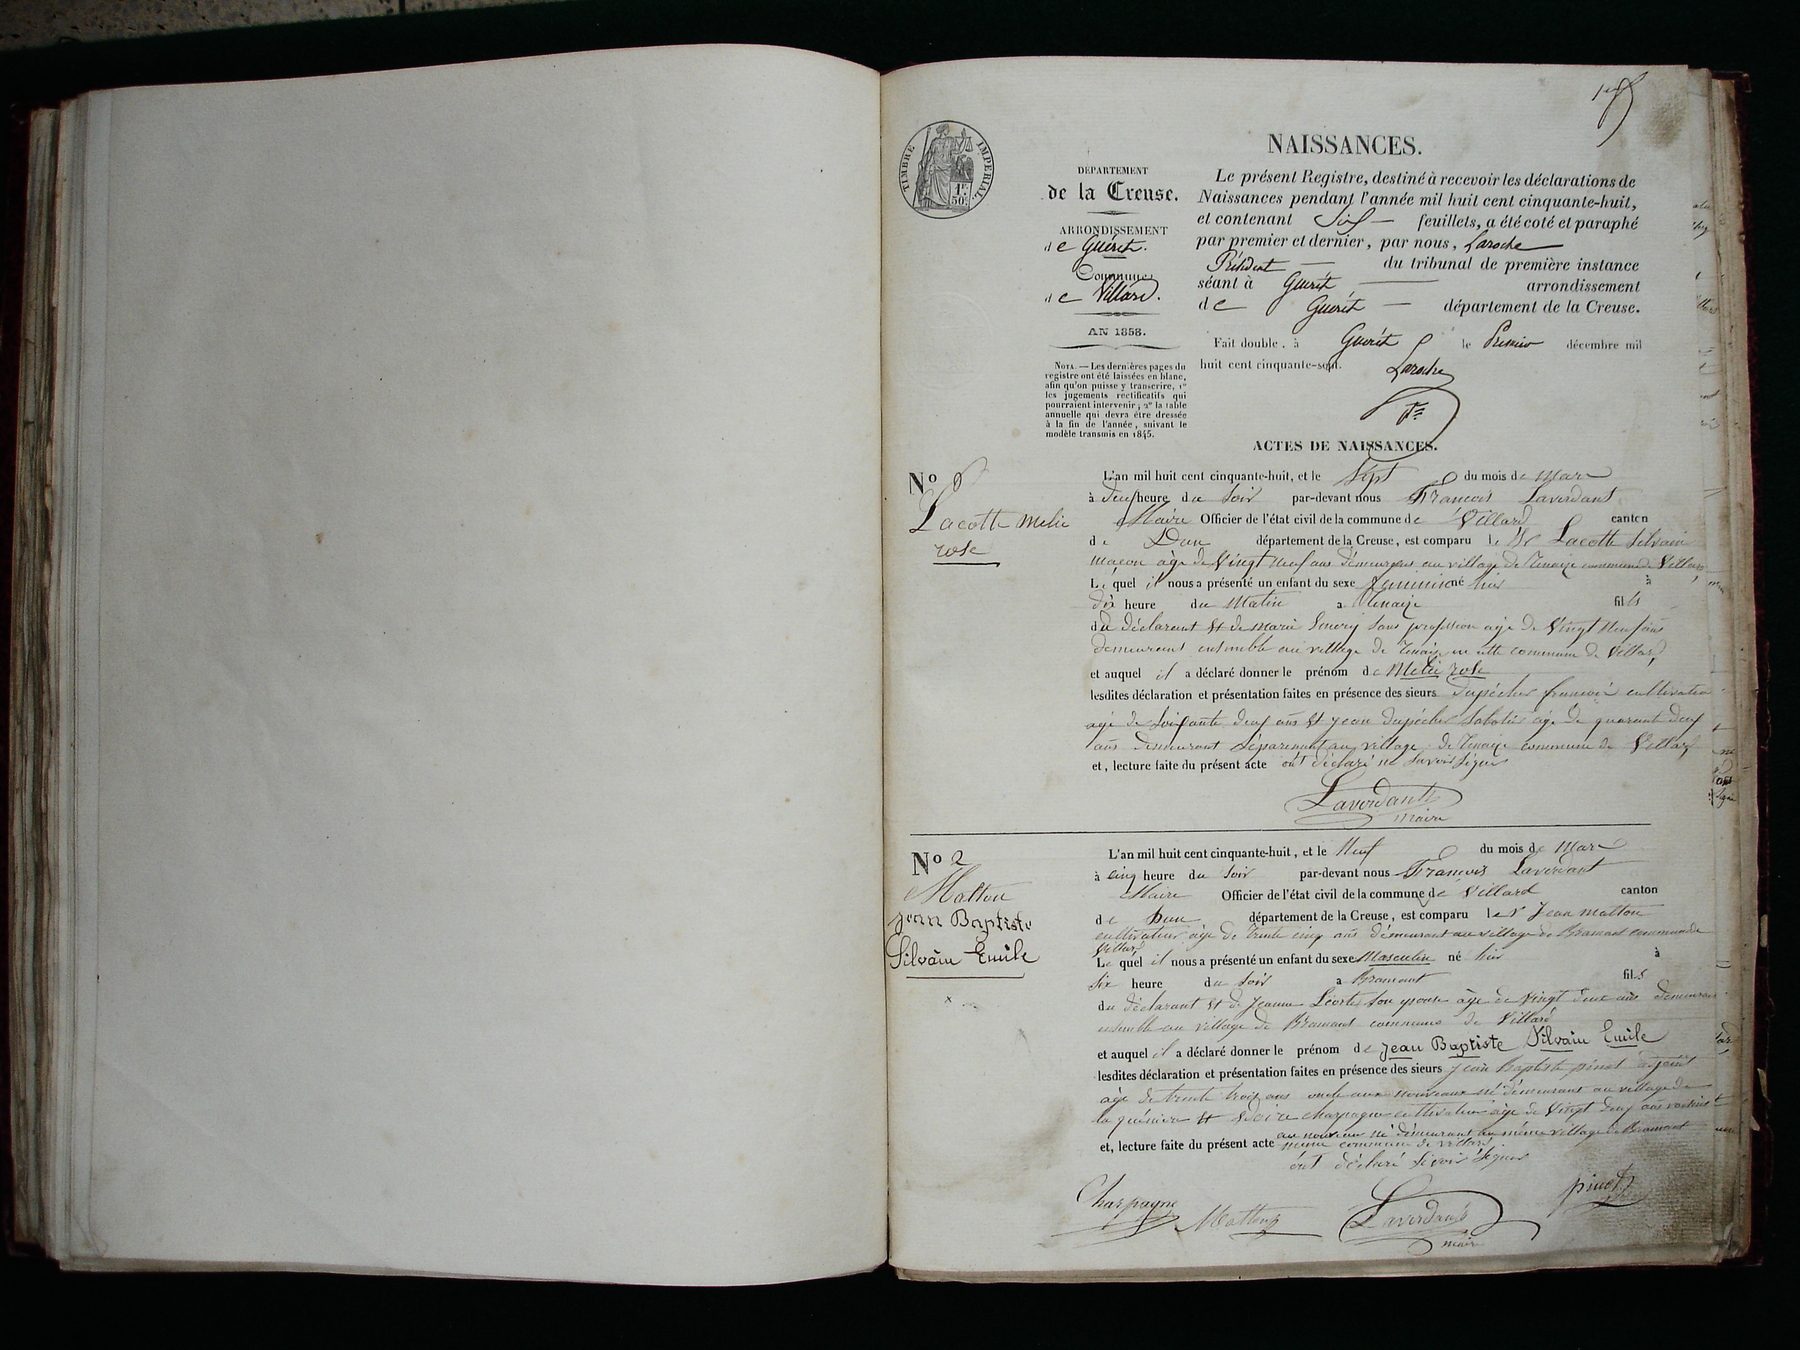 1er
TIMBRE IMPÉRIAL
1F.
50C.
NAISSANCES.
DÉPARTEMENT
de la Creuse.
ARRONDISSEMENT
de Guéret.
Commune
de Villard.
AN 1858.
NOTA. — Les dernières pages du
registre ont été laissées en blanc,
afin qu'on puisse y transcrire, 1°
les jugements rectificatifs qui
pourraient intervenir; 2° la table
annuelle qui devra être dressée
à la fin de l'année, suivant le
modèle transmis en 1845.
Le présent Registre, destiné à recevoir les déclarations de
Naissances pendant l'année mil huit cent cinquante-huit,
et contenant Six feuillets, a été coté et paraphé
par premier et dernier, par nous, Laroche
Président du tribunal de première instance
séant à Guéret arrondissement
de Guéret département de la Creuse.
Fait double, à Guéret le Premier décembre mil
huit cent cinquante-sept.
Laroche
ACTES DE NAISSANCES.
No
Lacotte Melie
rose
L'an mil huit cent cinquante-huit, et le Sept du mois de Mars
à deux heure du Soir par-devant nous Francois Laverdant
Maire Officier de l'état civil de la commune de Villard canton
de Dun département de la Creuse, est comparu le Sr Lacotte Silvain
macon age de Vingt neuf ans demeurant au village de commune de Villard
Le quel il nous a présenté un enfant du sexe feminin né hier à
dix heure du Matin a fils
du déclarant et de Marie sans profession age de Vingt Neuf ans
demeurant ensemble au village de en cette commune de Villard,
et auquel il a déclaré donner le prénom de Melie rose
lesdites déclaration et présentation faites en présence des sieurs Dupécher francois cultivateur
agé de Soixante deux ans et jean dupécher Sabotier age de quarante deux
ans demeurant Séparément au village de commune de Villard
et, lecture faite du présent acte ont déclaré ne Savoir Signer
Laverdant
maire
No 2
Matton
jean Baptiste
Silvain Emile
L'an mil huit cent cinquante-huit, et le Neuf du mois de Mars
à cinq heure du Soir par-devant nous Francois Laverdant
Maire Officier de l'état civil de la commune de Villard canton
de Dun département de la Creuse, est comparu le Sr Jean Matton
cultivateur age de trente cinq ans demeurant au village de Bramont commune de
Villard
Le quel il nous a présenté un enfant du sexe Masculin né hier à
Six heure du Soir a Bramont fils
du déclarant et de Jeanne Son épouse age de Vingt deux ans demeurant
ensemble au village de Bramont commune de Villard
et auquel il a déclaré donner le prénom de Jean Baptiste Silvain Emile
lesdites déclaration et présentation faites en présence des sieurs jean Baptiste pinot adjoint
age de trente trois ans oncle au nouveau né demeurant au village de
la et charpagne cultivateur age de Vingt deux ans voisin
au nouveau né demeurant au même village de Bramont
et, lecture faite du présent acte même commune de Villard.
ont déclaré Savoir Signer
Charpagne Matton Laverdant pinot
maire